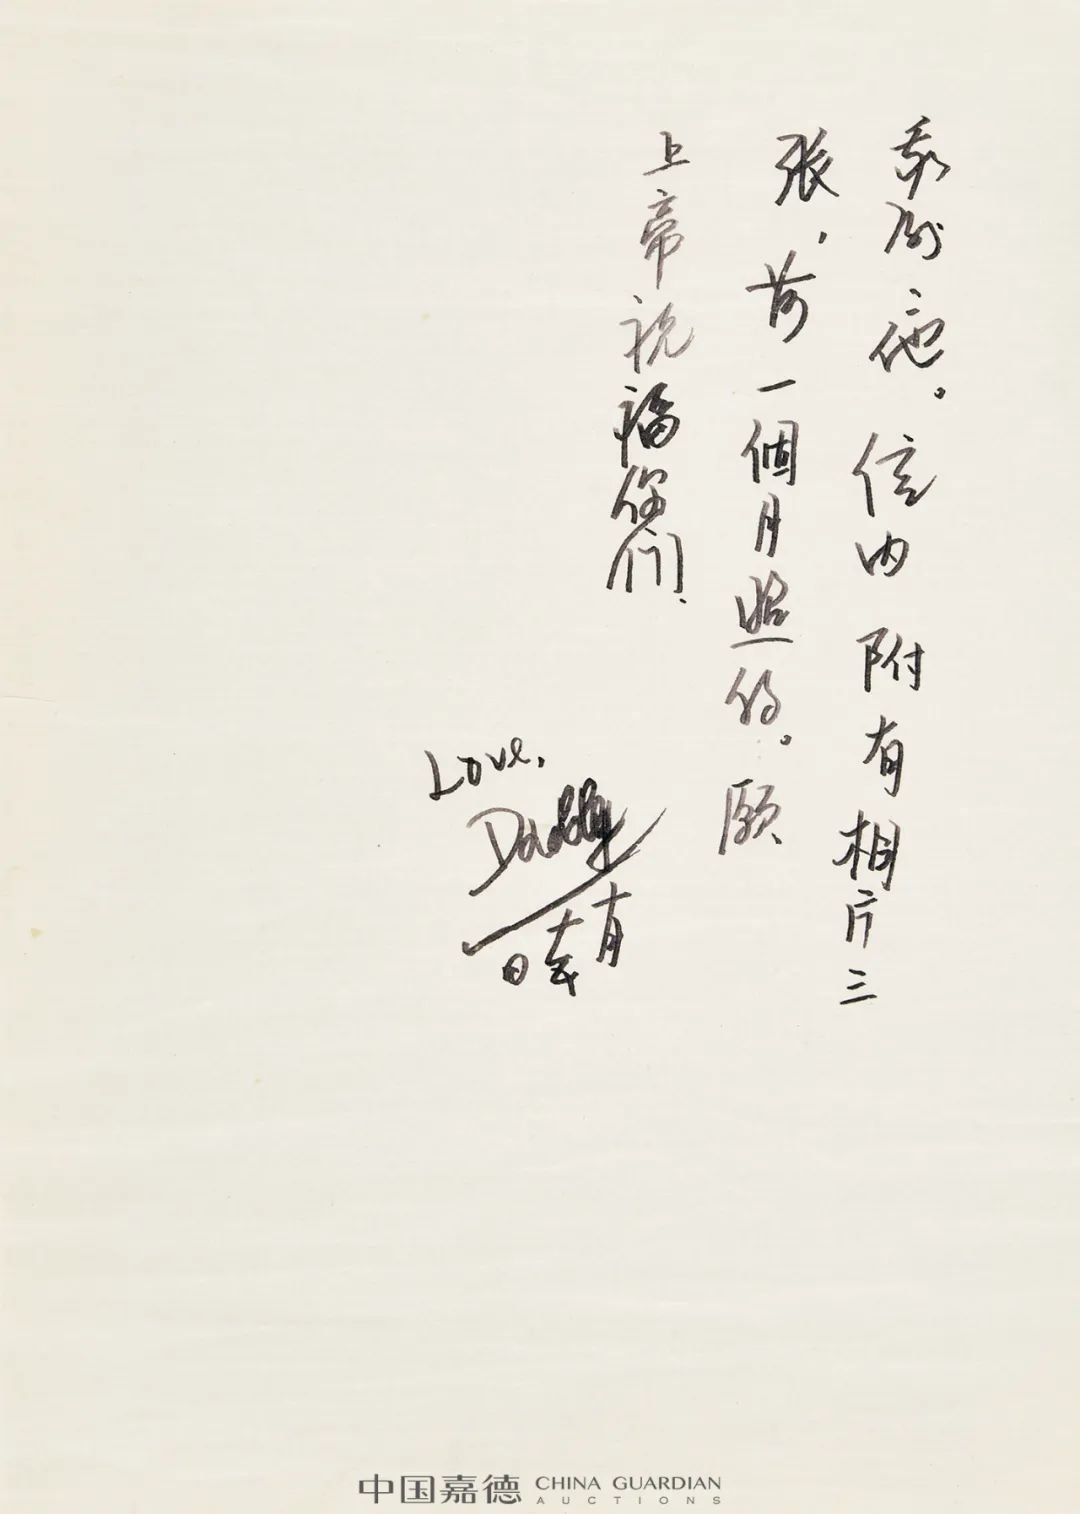 他。信内附有相片三
張，前一個月照的。願
上帝祝福你們.
Love,
Daddy
中国嘉德 CHINA GUARDIAN
AUCTIONS